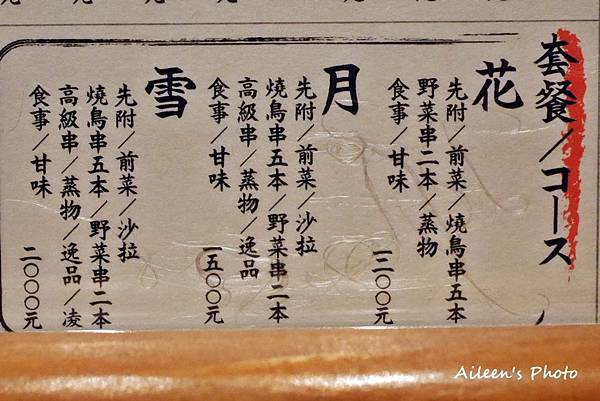 套餐／コース
花
先附／前菜／燒鳥串五本
野菜串二本／蒸物
食事／甘味
一二〇〇元
月
先附／前菜／沙拉
燒鳥串五本／野菜串二本
高級串／蒸物／逸品
食事／甘味
一五〇〇元
雪
先附／前菜／沙拉
燒鳥串五本／野菜串二本
高級串／蒸物／逸品／凌
食事／甘味
二〇〇〇元
Aileen's Photo